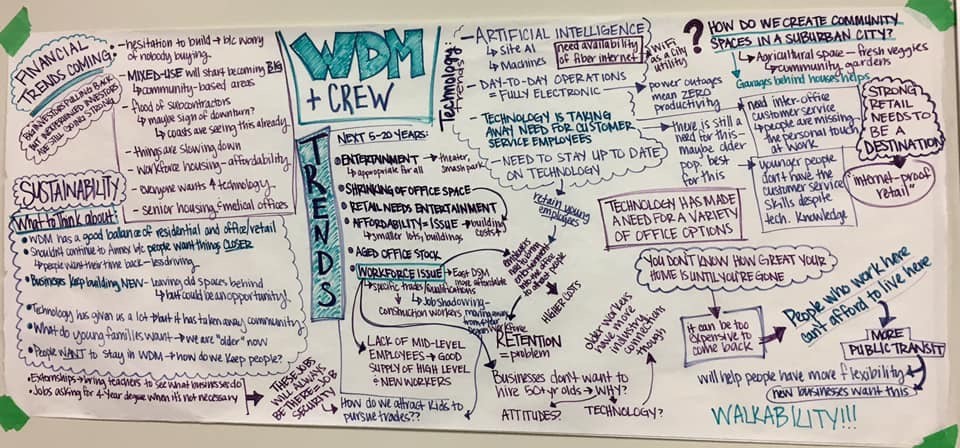 FINANCIAL
TRENDS COMING:
BIG INVESTORS PULLING BACK
BUT INEXPERIENCED INVESTORS
ARE STILL GOING STRONG
- hesitation to build → b/c worry
of nobody buying
- MIXED-USE will start becoming BIG
↳ community-based areas
- flood of subcontractors
↳ maybe sign of downturn?
↳ coasts are seeing this already
- things are slowing down
- workforce housing - affordability
- everyone wants technology
- senior housing & medical offices
SUSTAINABILITY
What to think about:
• WDM has a good ballance of residential and office/retail
• Shouldn't continue to Ames b/c people want things CLOSER
↳ people want their time back - less driving
• Businesses keep building NEW - leaving old spaces behind
↳ but could be an opportunity!
• Technology has given us a lot but it has taken away community
• What do young families want → we are "older" now
• People WANT to stay in WDM → how do we keep people?
• Externships → bring teachers to see what businesses do
• Jobs asking for 4-year degree when it's not necessary
THESE JOBS
WILL ALWAYS
BE THERE → JOB
SECURITY
WDM
+ CREW
TRENDS
NEXT 5-20 YEARS:
• ENTERTAINMENT → theater,
smash park
↳ appropriate for all
• SHRINKING OF OFFICE SPACE
• RETAIL NEEDS ENTERTAINMENT
• AFFORDABILITY = ISSUE → building
costs ↑
↳ smaller lots, buildings
• AGED OFFICE STOCK
• WORKFORCE ISSUE → East DSM
more affordable
↳ specific trades/qualifications
↳ Job shadowing -
construction workers
moving away
from 4 year
workforce
LACK OF MID-LEVEL
EMPLOYEES → GOOD
SUPPLY OF HIGH LEVEL
& NEW WORKERS
How do we attract kids to
pursue trades??
Technology Trends:
- ARTIFICIAL INTELLIGENCE
↳ Site AI
↳ Machines
need availability
of fiber internet
WiFi
as a city
utility
- DAY-TO-DAY OPERATIONS
= FULLY ELECTRONIC
power outages
mean ZERO
productivity
- TECHNOLOGY IS TAKING
AWAY NEED FOR CUSTOMER
SERVICE EMPLOYEES
there is still a
need for this -
maybe older
pop. best
for this
need inter-office
customer service
↳ people are missing
the personal touch
at work
younger people
don't have the
customer service
skills despite
tech. knowledge
- NEED TO STAY UP TO DATE
ON TECHNOLOGY
retain young
employees
HIGHER COSTS
RETENTION
= problem
older workers
have more
industry
connections
though
Businesses don't want to
hire 50+ yr olds → WHY?
ATTITUDES?
TECHNOLOGY?
TECHNOLOGY HAS MADE
A NEED FOR A VARIETY
OF OFFICE OPTIONS
? HOW DO WE CREATE COMMUNITY
SPACES IN A SUBURBAN CITY?
↳ Agricultural space - fresh veggies
↳ community gardens
Garages behind houses helps
STRONG
RETAIL
NEEDS TO
BE A
DESTINATION
"internet-proof
retail"
YOU DON'T KNOW HOW GREAT YOUR
HOME IS UNTIL YOU'RE GONE
it can be too
expensive to
come back
People who work here
can't afford to live here
MORE
PUBLIC TRANSIT
will help people have more flexibility
new businesses want this
WALKABILITY!!!